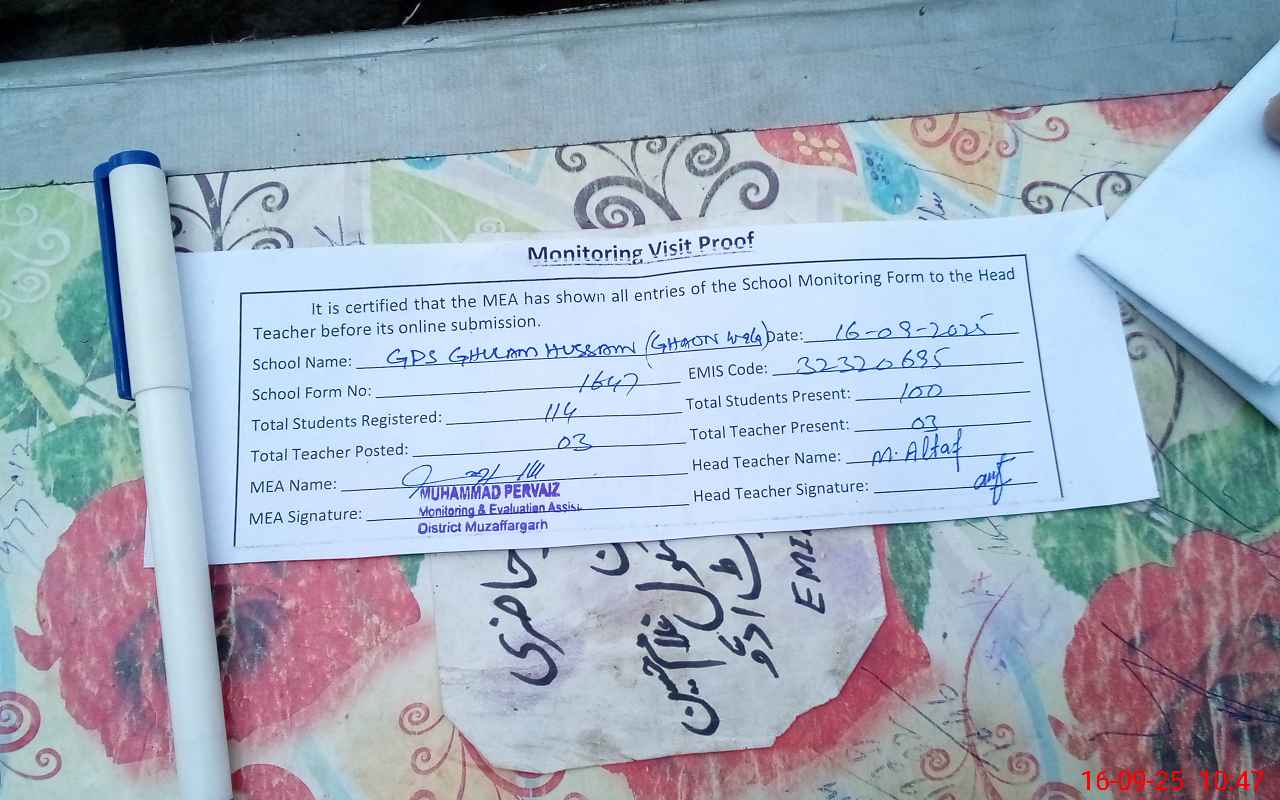 Monitoring Visit Proof
It is certified that the MEA has shown all entries of the School Monitoring Form to the Head
Teacher before its online submission.
School Name: GPS GHULAM HUSSAIN (GHAON wala) Date: 16-09-2025
School Form No: 1647 EMIS Code: 32320695
Total Students Registered: 114 Total Students Present: 100
Total Teacher Posted: 03 Total Teacher Present: 03
MEA Name: Head Teacher Name: M. Altaf
MUHAMMAD PERVAIZ
MEA Signature: Monitoring & Evaluation Assis. Head Teacher Signature:
District Muzaffargarh
حاضری
غلام حسین
EMI
16-09-25 10:47